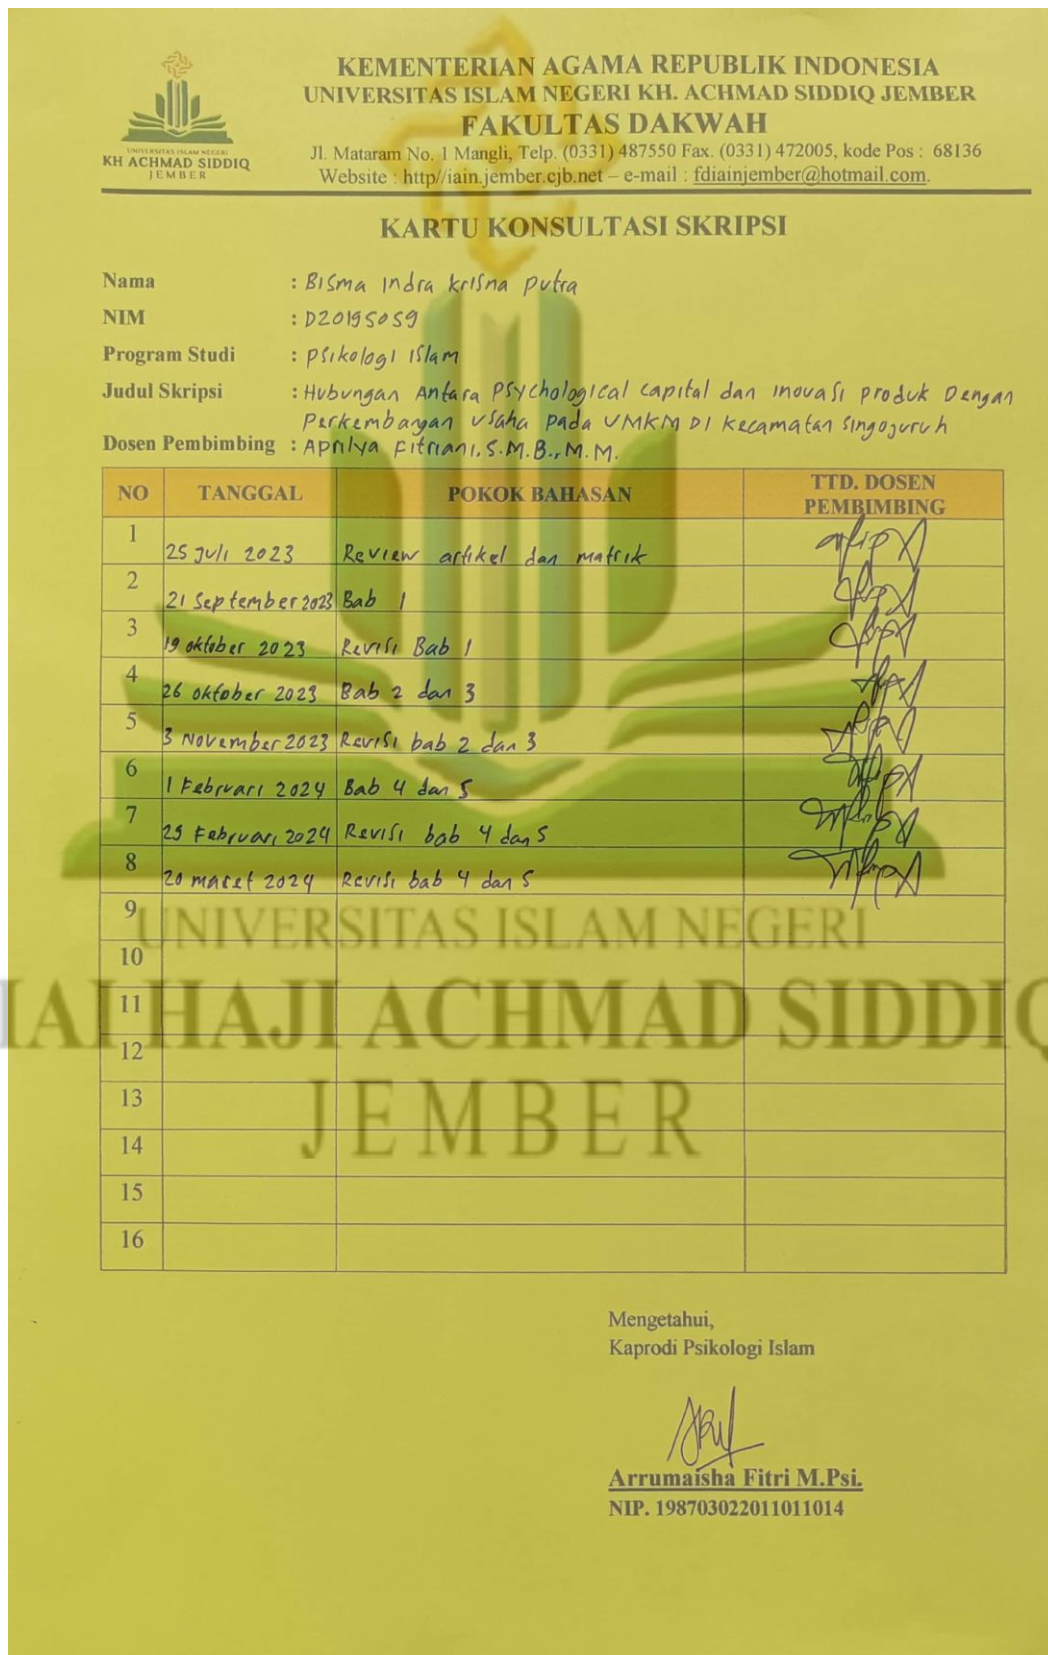 KEMENTERIAN AGAMA REPUBLIK INDONESIA
UNIVERSITAS ISLAM NEGERI KH. ACHMAD SIDDIQ JEMBER
FAKULTAS DAKWAH
Jl. Mataram No. 1 Mangli, Telp. (0331) 487550 Fax. (0331) 472005, kode Pos : 68136
Website : http//iain.jember.cjb.net – e-mail : fdiainjember@hotmail.com.
UNIVERSITAS ISLAM NEGERI
KH ACHMAD SIDDIQ
JEMBER
KARTU KONSULTASI SKRIPSI
Nama : Bisma Indra Krisna Putra
NIM : D20195059
Program Studi : Psikologi Islam
Judul Skripsi : Hubungan Antara Psychological capital dan inovasi produk Dengan
Perkembangan Usaha pada UMKM DI Kecamatan Singojuruh
Dosen Pembimbing : Aprilya Fitriani, S.M.B., M.M.
NO TANGGAL POKOK BAHASAN TTD. DOSEN PEMBIMBING
1 25 Juli 2023 Review artikel dan matrik
2 21 September 2023 Bab 1
3 19 oktober 2023 Revisi Bab 1
4 26 oktober 2023 Bab 2 dan 3
5 3 November 2023 Revisi bab 2 dan 3
6 1 Februari 2024 Bab 4 dan 5
7 29 Februari 2024 Revisi bab 4 dan 5
8 20 maret 2024 Revisi bab 4 dan 5
9
10
11
12
13
14
15
16
UNIVERSITAS ISLAM NEGERI
IAI HAJI ACHMAD SIDDIQ
JEMBER
Mengetahui,
Kaprodi Psikologi Islam
Arrumaisha Fitri M.Psi.
NIP. 198703022011011014